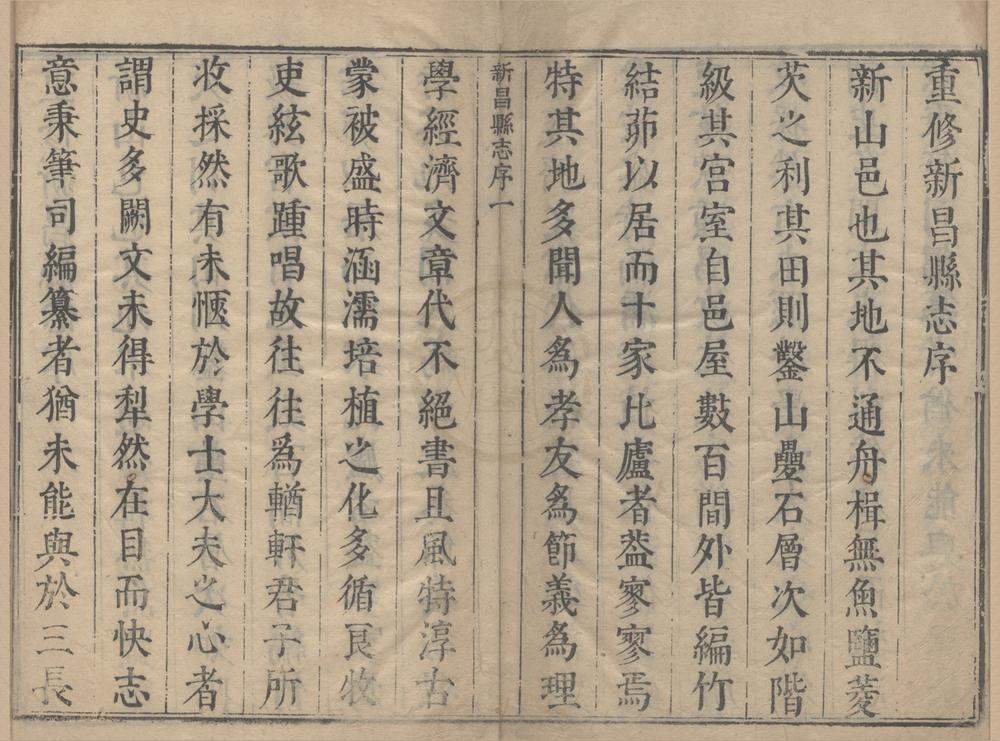 重修新昌縣志序
新山邑也其地不通舟楫無魚鹽菱
芡之利其田則鑿山疊石層次如階
級其宫室自邑屋數百間外皆編竹
結茆以居而十家比廬者葢寥寥焉
特其地多聞人為孝友為節義為理
新昌縣志序一
學經濟文章代不絕書且風特淳古
蒙被盛時涵濡培植之化多循良牧
吏絃歌踵唱故往往為輶軒君子所
收採然有未愜於學士大夫之心者
謂史多闕文未得犁然在目而快志
意秉筆司編纂者猶未能與於三長